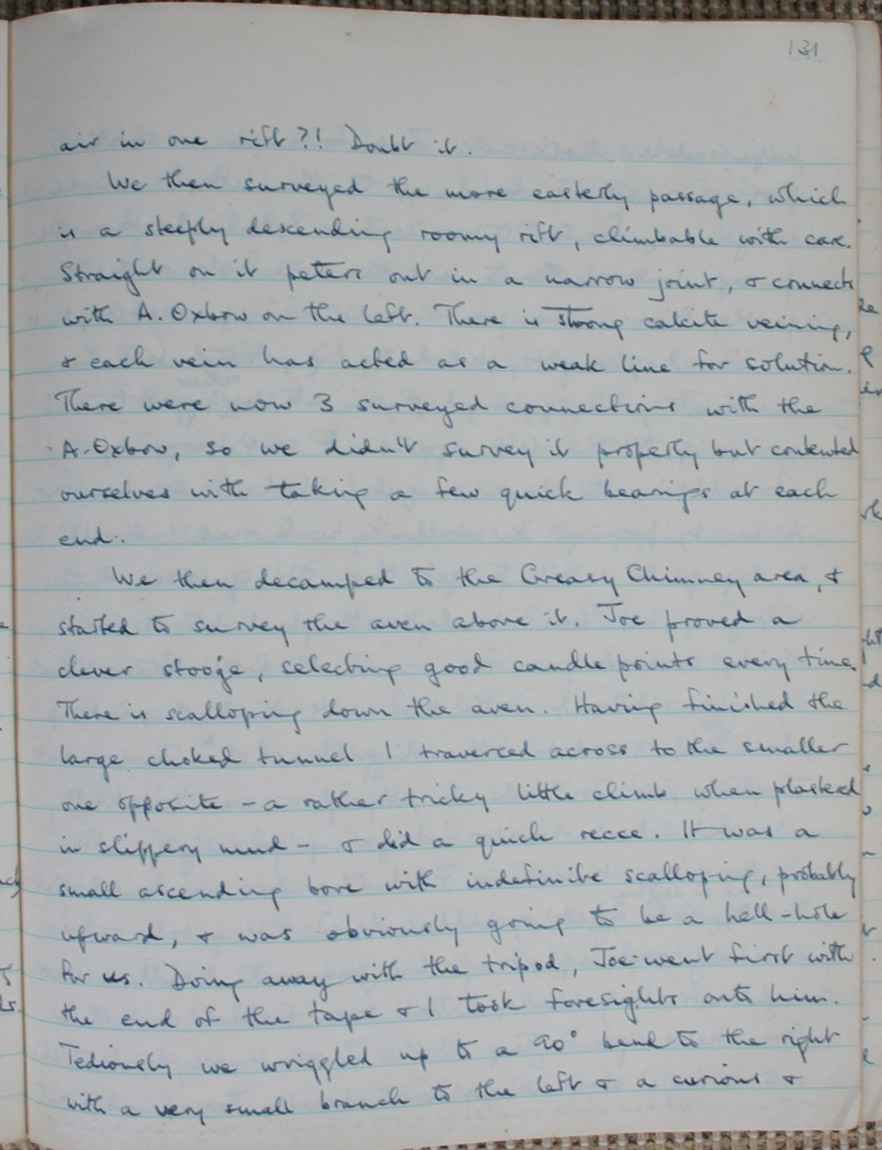 131
air in one rift?! Doubt it.
We then surveyed the more easterly passage, which
is a steeply descending roomy rift, climbable with care.
Straight on it peters out in a narrow joint, & connects
with A. Oxbow on the left. There is strong calcite veining,
& each vein has acted as a weak line for solution.
There were now 3 surveyed connections with the
A. Oxbow, so we didn't survey it properly but contented
ourselves with taking a few quick bearings at each
end.
We then decamped to the Greasy Chimney area, &
started to survey the aven above it. Joe proved a
clever stooge, selecting good candle points every time.
There is scalloping down the aven. Having finished the
large choked tunnel I traversed across to the smaller
one opposite - a rather tricky little climb when plastered
in slippery mud - & did a quick recce. It was a
small ascending bore with indefinite scalloping, probably
upward, & was obviously going to be a hell-hole
for us. Doing away with the tripod, Joe went first with
the end of the tape & I took foresights onto him.
Tediously we wriggled up to a 90° bend to the right
with a very small branch to the left & a curious &